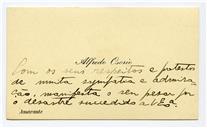 Alfredo Osorio
Com os seus respeitos e protestos
de muita sympathia e admira
ção, manifesta o seu pesar por
o desastre succedido a V. Ex.a
Amarante